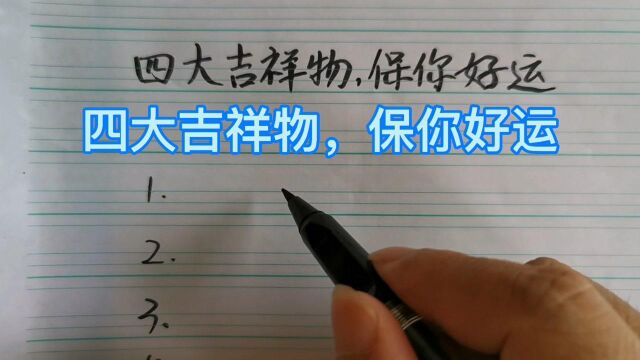 四大吉祥物,保你好运
四大吉祥物，保你好运
1.
2.
3.